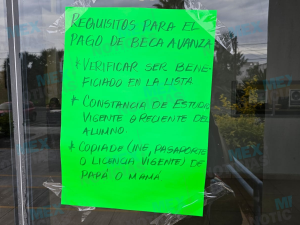 REQUISITOS PARA EL
PAGO DE BECA AVANZA
* VERIFICAR SER BENE-
FICIADO EN LA LISTA
* CONSTANCIA DE ESTUDIO
VIGENTE O RECIENTE DEL
ALUMNO
* COPIA DE (INE, PASAPORTE
O LICENCIA VIGENTE) DE
PAPÁ O MAMÁ